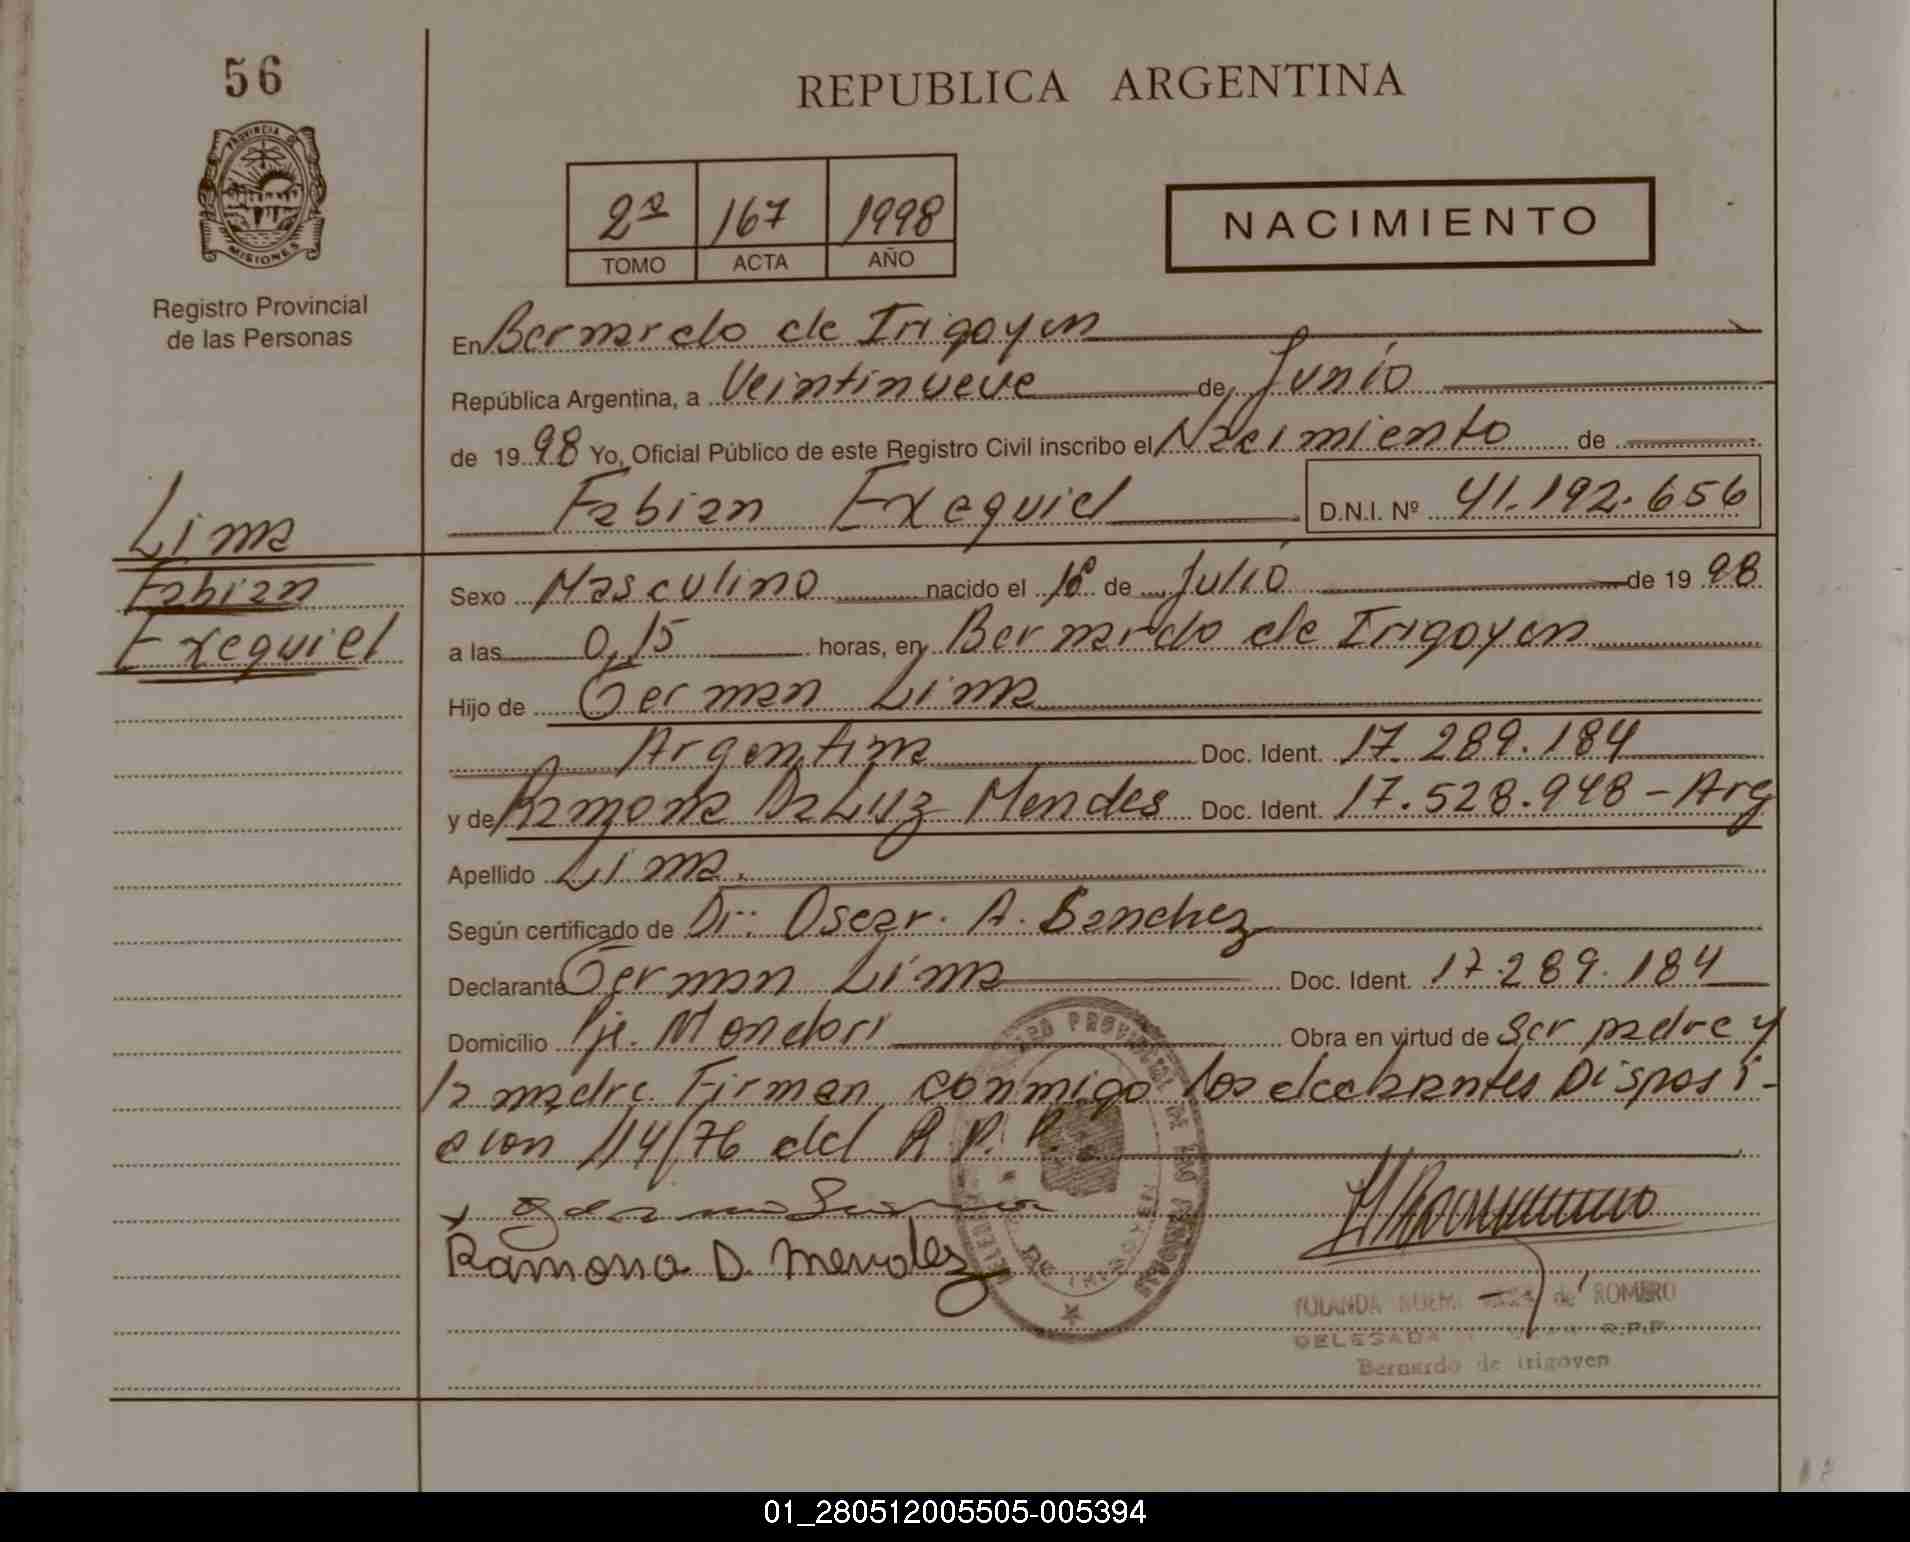 56
REPUBLICA ARGENTINA
PROVINCIA DE
MISIONES
2ª 167 1998
TOMO ACTA AÑO
NACIMIENTO
Registro Provincial
de las Personas
En Bernardo de Irigoyen
República Argentina, a Veintinueve de Junio
de 1998 Yo, Oficial Público de este Registro Civil inscribo el Nacimiento de
Fabian Exequiel D.N.I. Nº 41.192.656
Lima
Fabian
Exequiel
Sexo Masculino nacido el de Julio de 1998
a las 0,15 horas, en Bernardo de Irigoyen
Hijo de German Lima
Argentina Doc. Ident. 17.289.184
y de Ramona Da Luz Mendes Doc. Ident. 17.528.948 - Arg
Apellido Lima.
Según certificado de Dr: Oscar. A. Sanchez
Declarante German Lima Doc. Ident. 17.289.184
Domicilio Pje. Mondori Obra en virtud de Ser padre y
la madre. Firman conmigo los declarantes Disposi-
cion 114/76 del R.P.P.
Ramona D. Mendez
YOLANDA NOEMI de ROMERO
DELEGADA R.P.P.
Bernardo de Irigoyen
01_280512005505-005394